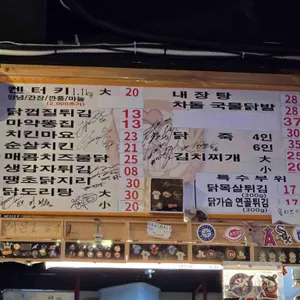 켄터키 1.1kg 大 20
양념/간장/깐풍/마늘
(2,000추가)
닭껍질튀김 13
닭똥집 13
치킨마요 23
순살치킨 21
매콤치즈불닭 25
생감자튀김 08
땡초닭지리 30
닭도리탕 大 30
小 20
내장탕 28
차돌 국물닭발 28
大 37
닭 죽 4인 30
6인 35
김치찌개 大 25
小 15
특수부위
닭목살튀김 20
(300g)
닭가슴 연골튀김 20
(300g)
17